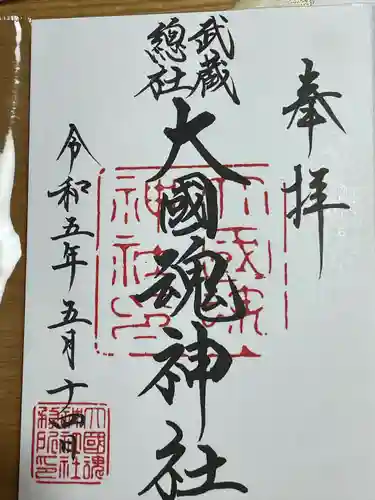 奉拝
武蔵
總社
大國魂神社
令和五年五月十四日
大國魂
神社
務所印